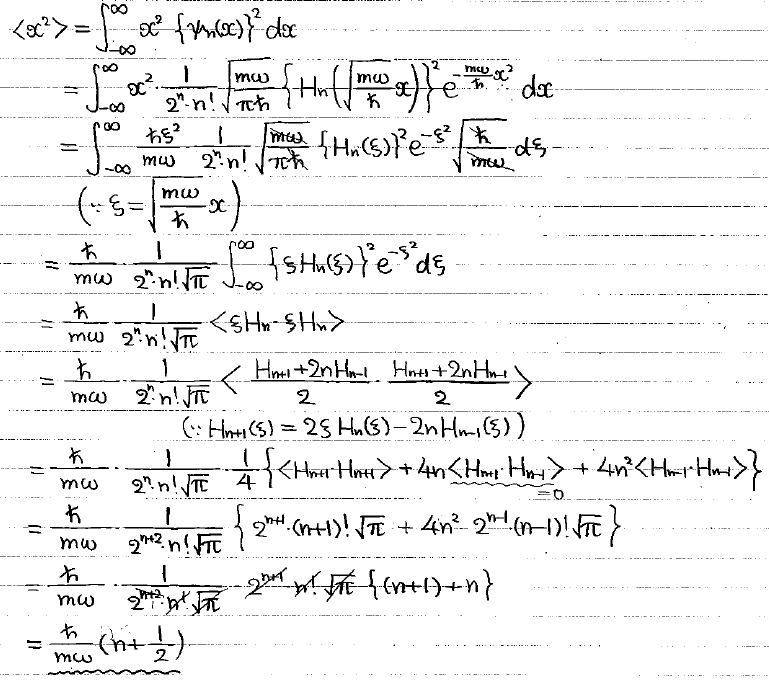 <x²> = ∫_{-∞}^{∞} x² {ψn(x)}² dx
= ∫_{-∞}^{∞} x² · 1/(2ⁿ·n!) √(mω/πħ) {Hn(√(mω/ħ) x)}² e^{-(mω/ħ)x²} dx
= ∫_{-∞}^{∞} ħξ²/mω · 1/(2ⁿ·n!) √(mω/πħ) {Hn(ξ)}² e^{-ξ²} √(ħ/mω) dξ
(∵ ξ = √(mω/ħ) x)
= ħ/mω · 1/(2ⁿ·n!√π) ∫_{-∞}^{∞} {ξHn(ξ)}² e^{-ξ²} dξ
= ħ/mω · 1/(2ⁿ·n!√π) <ξHn·ξHn>
= ħ/mω · 1/(2ⁿ·n!√π) < (Hn+1+2nHn-1)/2 · (Hn+1+2nHn-1)/2 >
(∵ Hn+1(ξ) = 2ξHn(ξ) − 2nHn-1(ξ))
= ħ/mω · 1/(2ⁿ·n!√π) · 1/4 {<Hn+1·Hn+1> + 4n<Hn+1·Hn-1> + 4n²<Hn-1·Hn-1>}
=0
= ħ/mω · 1/(2ⁿ⁺²·n!√π) {2ⁿ⁺¹·(n+1)!√π + 4n²·2ⁿ⁻¹·(n−1)!√π}
= ħ/mω · 1/(2ⁿ⁺²·n!√π) · 2ⁿ⁺¹·n!√π {(n+1)+n}
= ħ/mω (n + 1/2)